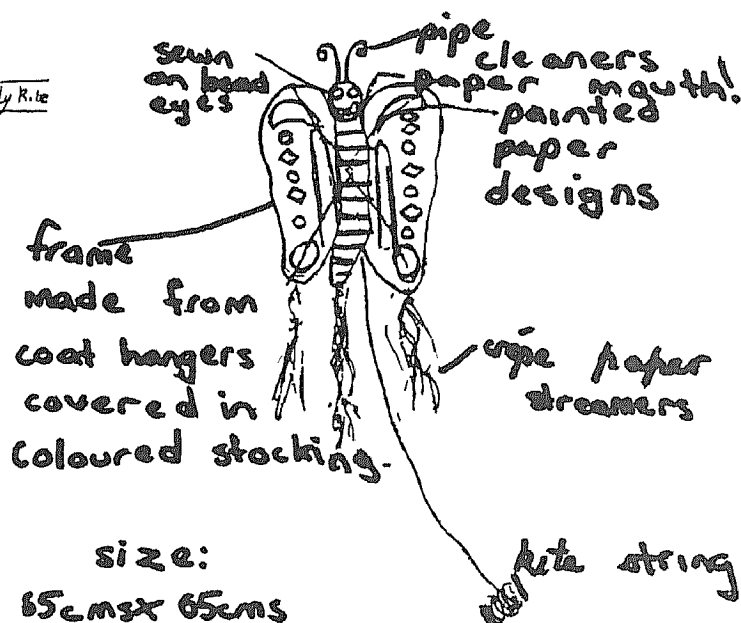 ly Kite
sewn
on bead
eyes
pipe
cleaners
paper mouth!
painted
paper
designs
frame
made from
coat hangers
covered in
coloured stocking.
crepe paper
streamers
size:
65cms x 65cms
kite string